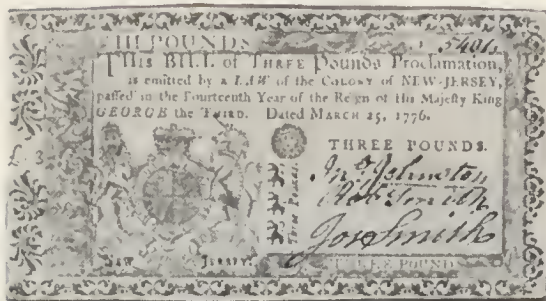 III POUNDS 5404
THIS BILL of THREE Pounds Proclamation,
is emitted by a LAW of the COLONY of NEW-JERSEY,
paſſed in the Fourteenth Year of the Reign of His Majeſty King
GEORGE the THIRD. Dated MARCH 25, 1776.
THREE POUNDS.
Jno Johnston
Robt Smith
Jos Smith
NEW JERSEY
THREE POUND